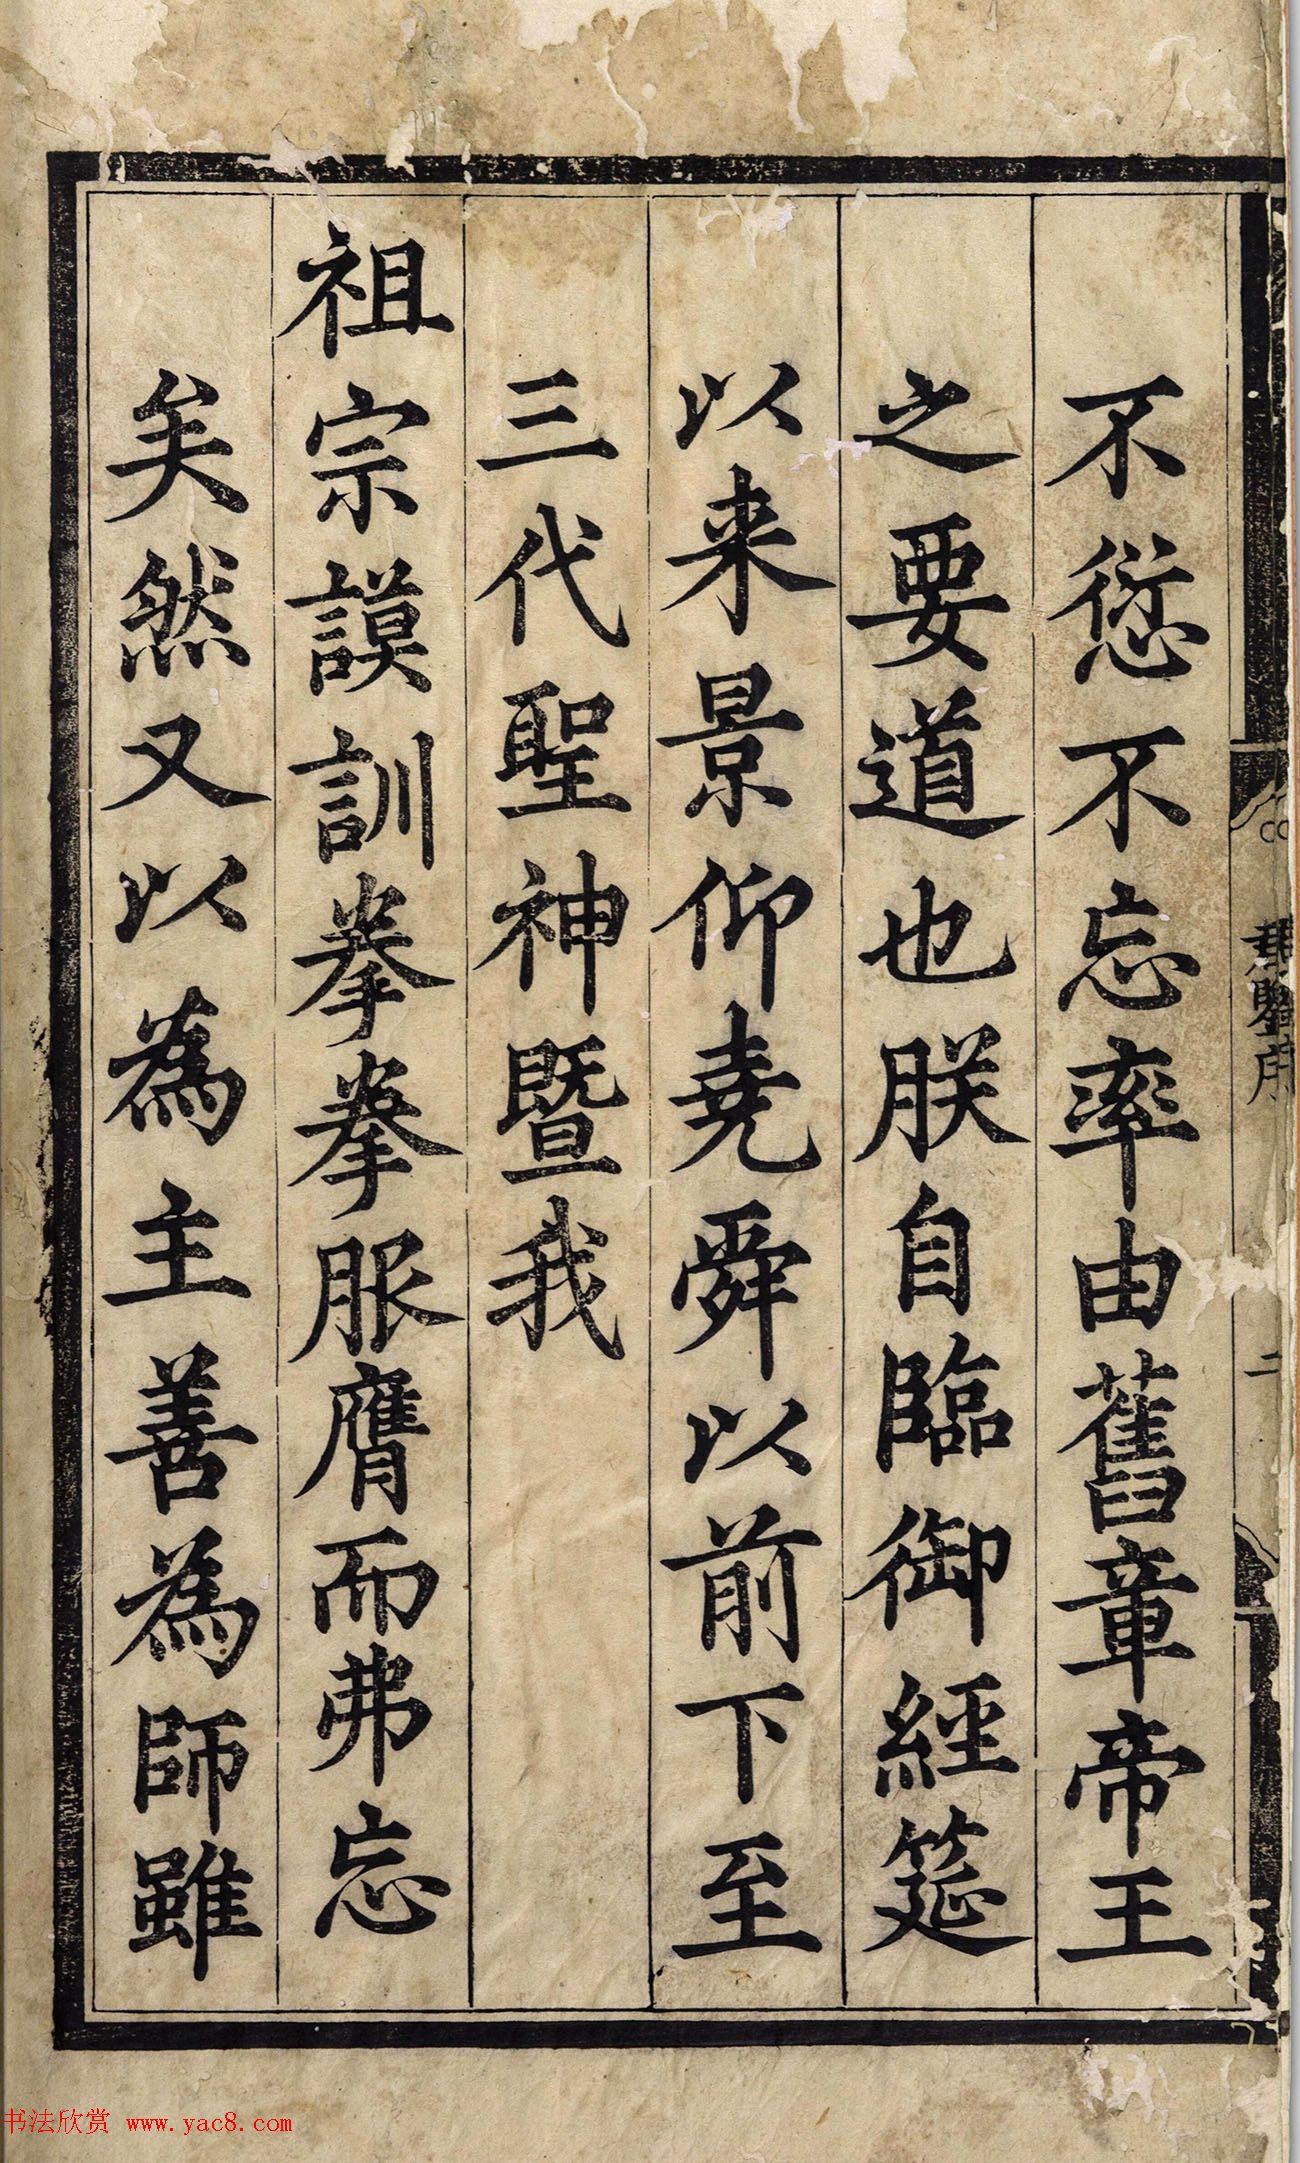 不愆不忘率由舊章帝王
之要道也朕自臨御經筵
以来景仰堯舜以前下至
三代聖神暨我
祖宗謨訓拳拳服膺而弗忘
矣然又以為主善為師雖
二
书法欣赏 www.yac8.com